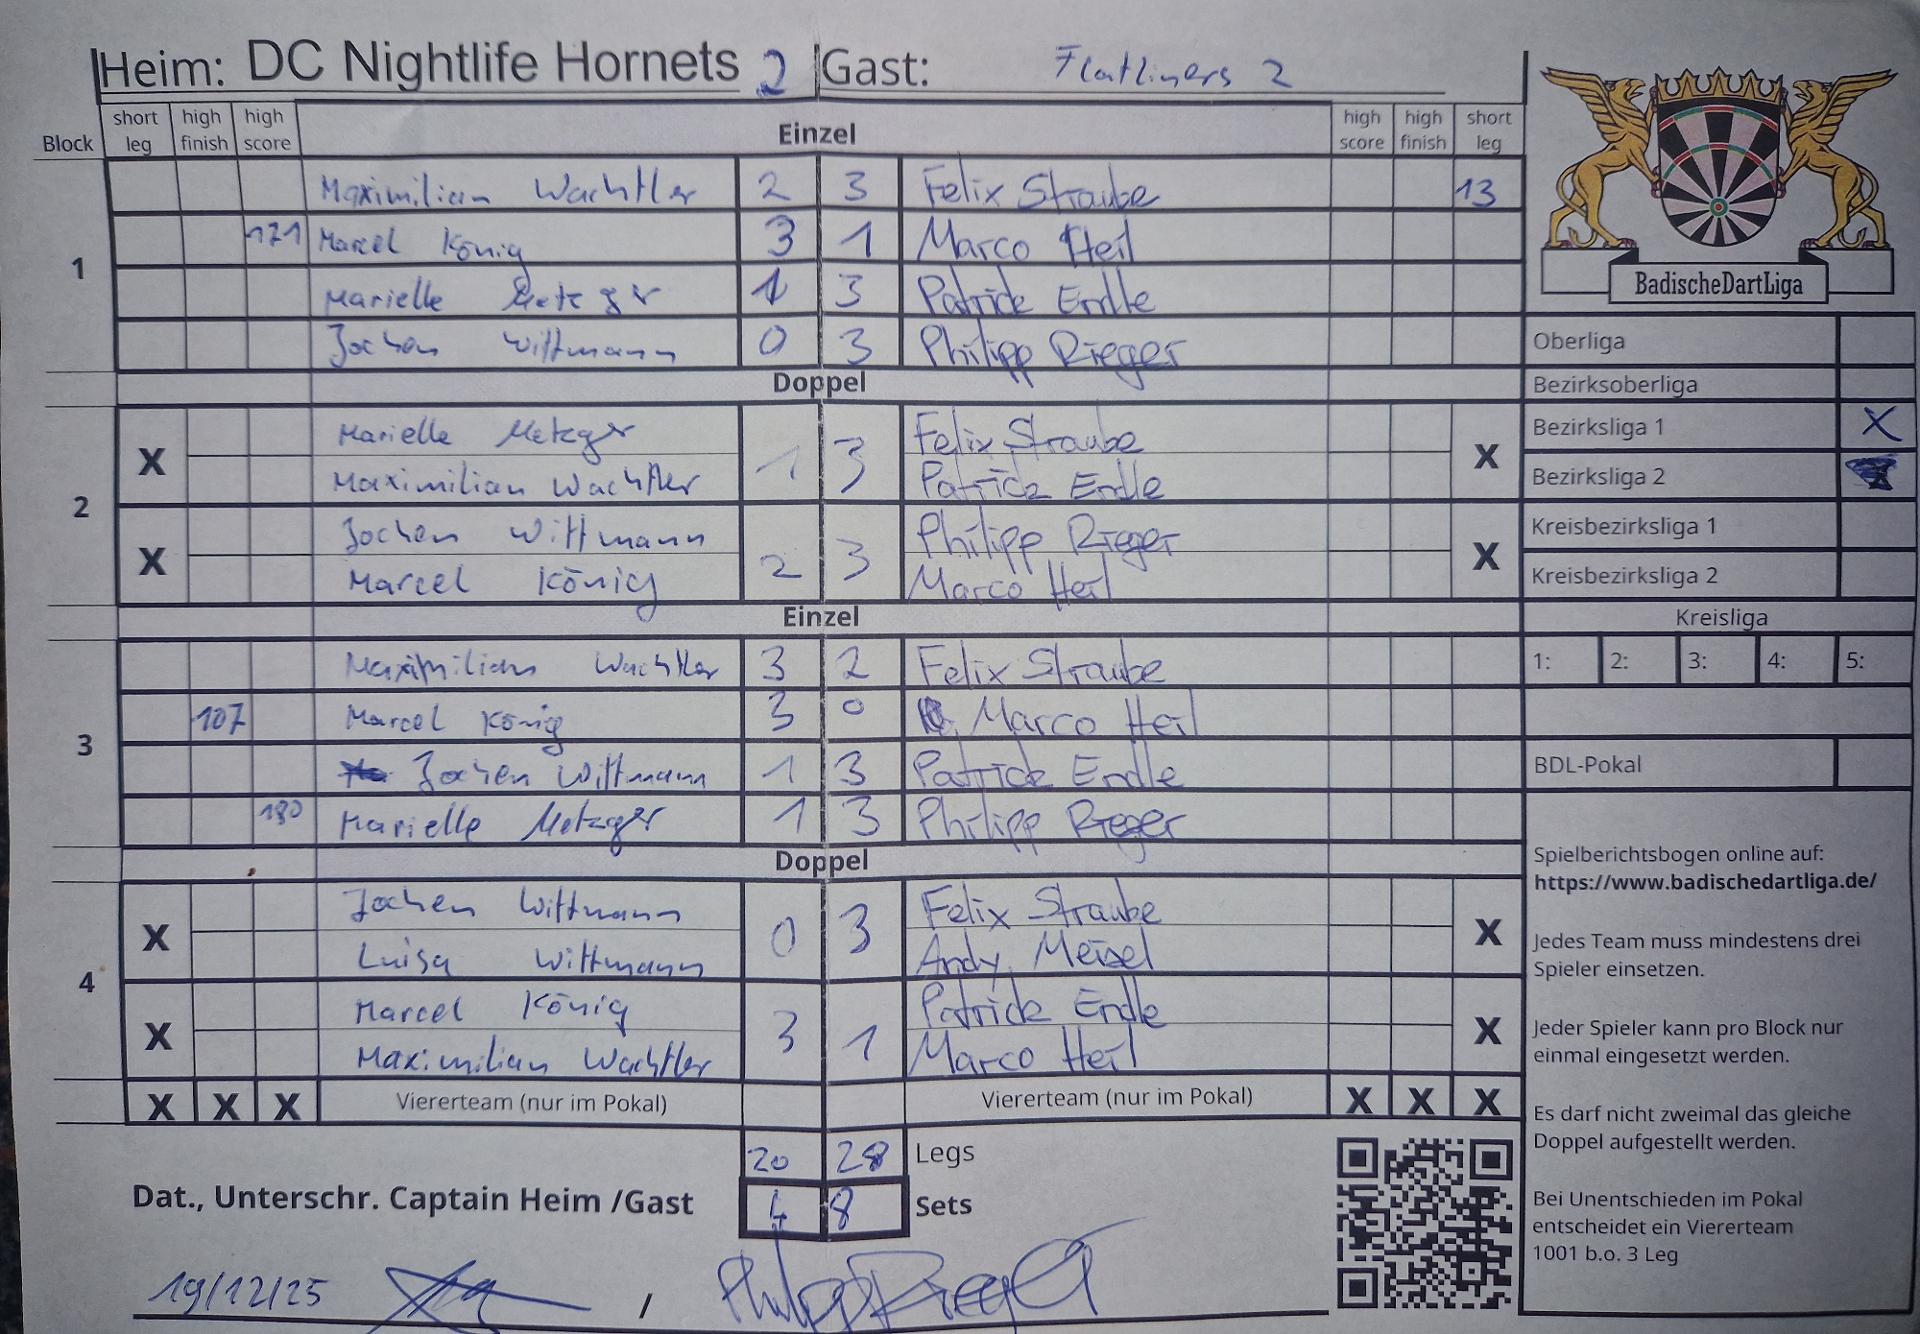 Heim: DC Nightlife Hornets 2 Gast: Flatliners 2
Block short leg high finish high score Einzel high score high finish short leg
1
Maximilian Wachtler 2 3 Felix Straube 13
171 Marcel König 3 1 Marco Heil
Marielle Metzger 1 3 Patrick Endle
Jochen Wittmann 0 3 Philipp Rieger
Doppel
2
X Marielle Metzger 1 3 Felix Straube X
Maximilian Wachtler Patrick Endle
X Jochen Wittmann 2 3 Philipp Rieger X
Marcel König Marco Heil
Einzel
3
Maximilian Wachtler 3 2 Felix Straube
107 Marcel König 3 0 Marco Heil
Jochen Wittmann 1 3 Patrick Endle
180 Marielle Metzger 1 3 Philipp Rieger
Doppel
4
X Jochen Wittmann 0 3 Felix Straube X
Luisa Wittmann Andy Meisel
X Marcel König 3 1 Patrick Endle X
Maximilian Wachtler Marco Heil
X X X Viererteam (nur im Pokal) Viererteam (nur im Pokal) X X X
20 28 Legs
Dat., Unterschr. Captain Heim /Gast 4 8 Sets
19/12/25 / Philipp Rieger
BadischeDartLiga
Oberliga
Bezirksoberliga
Bezirksliga 1 X
Bezirksliga 2
Kreisbezirksliga 1
Kreisbezirksliga 2
Kreisliga
1: 2: 3: 4: 5:
BDL-Pokal
Spielberichtsbogen online auf:
https://www.badischedartliga.de/
Jedes Team muss mindestens drei
Spieler einsetzen.
Jeder Spieler kann pro Block nur
einmal eingesetzt werden.
Es darf nicht zweimal das gleiche
Doppel aufgestellt werden.
Bei Unentschieden im Pokal
entscheidet ein Viererteam
1001 b.o. 3 Leg